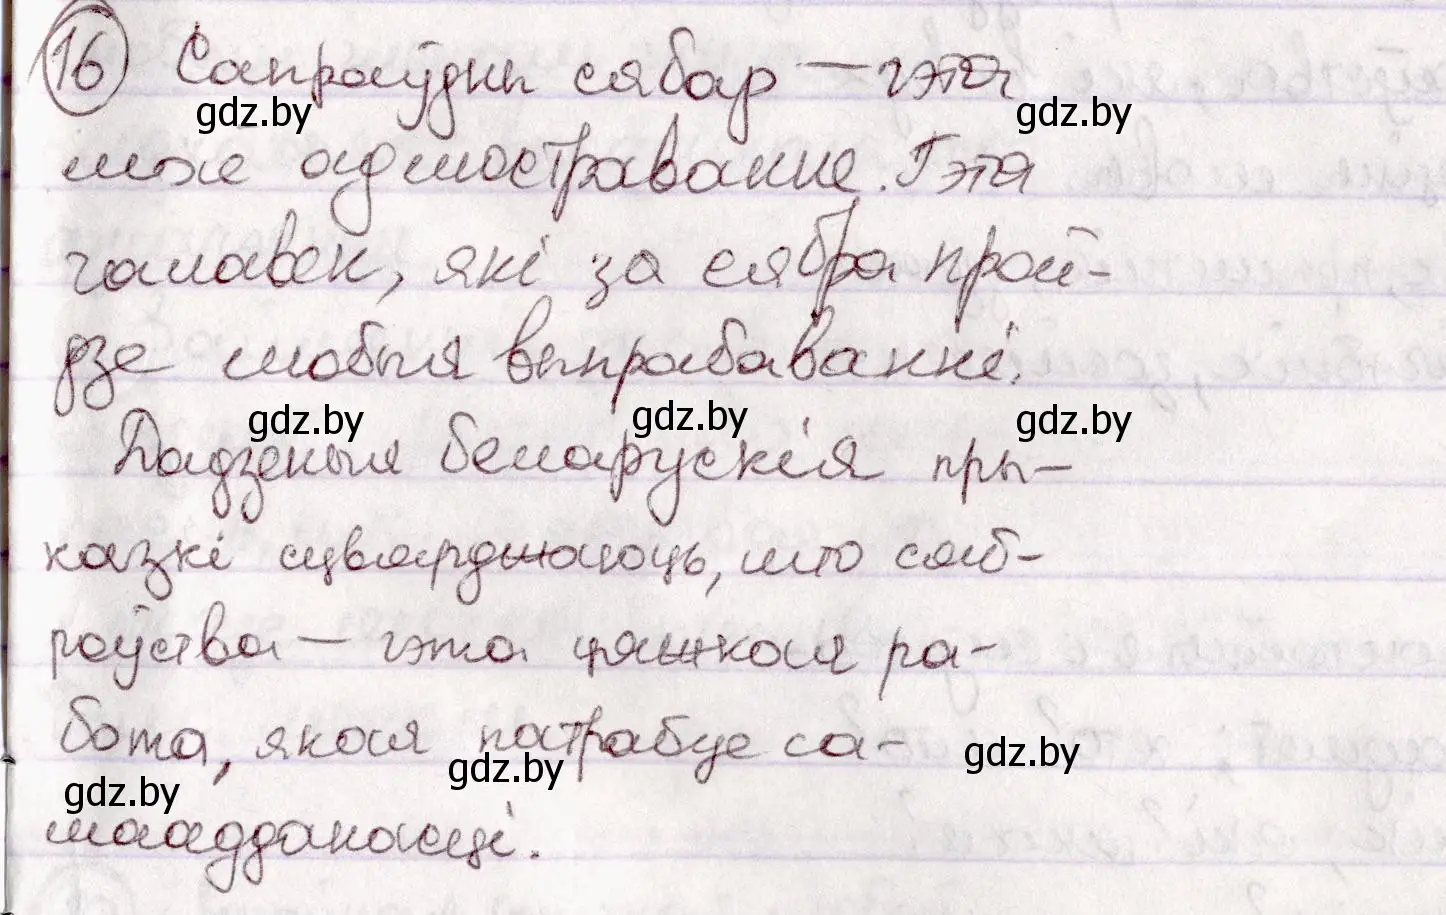 16 Сапраўдны сябар — гэта
маё адлюстраванне. Гэта
чалавек, які за сябра прой-
дзе любыя выпрабаванні.
Дадзеныя беларускія пры-
казкі сцвярджаюць, што сяб-
роўства — гэта цяжкая ра-
бота, якая патрабуе са-
мааддачнасці.
gdz.by
gdz.by
gdz.by
gdz.by
gdz.by
gdz.by
gdz.by
gdz.by